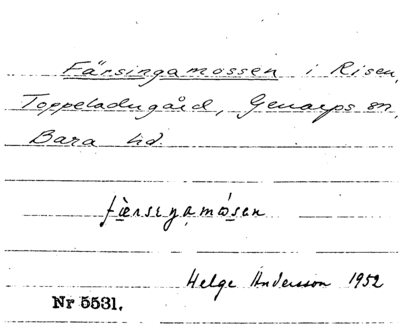 Färsingamossen i Risen,
Toppeladugård, Genarps sn,
Bara hd.
færsiŋamósen
Helge Andersson 1952
Nr 5531.